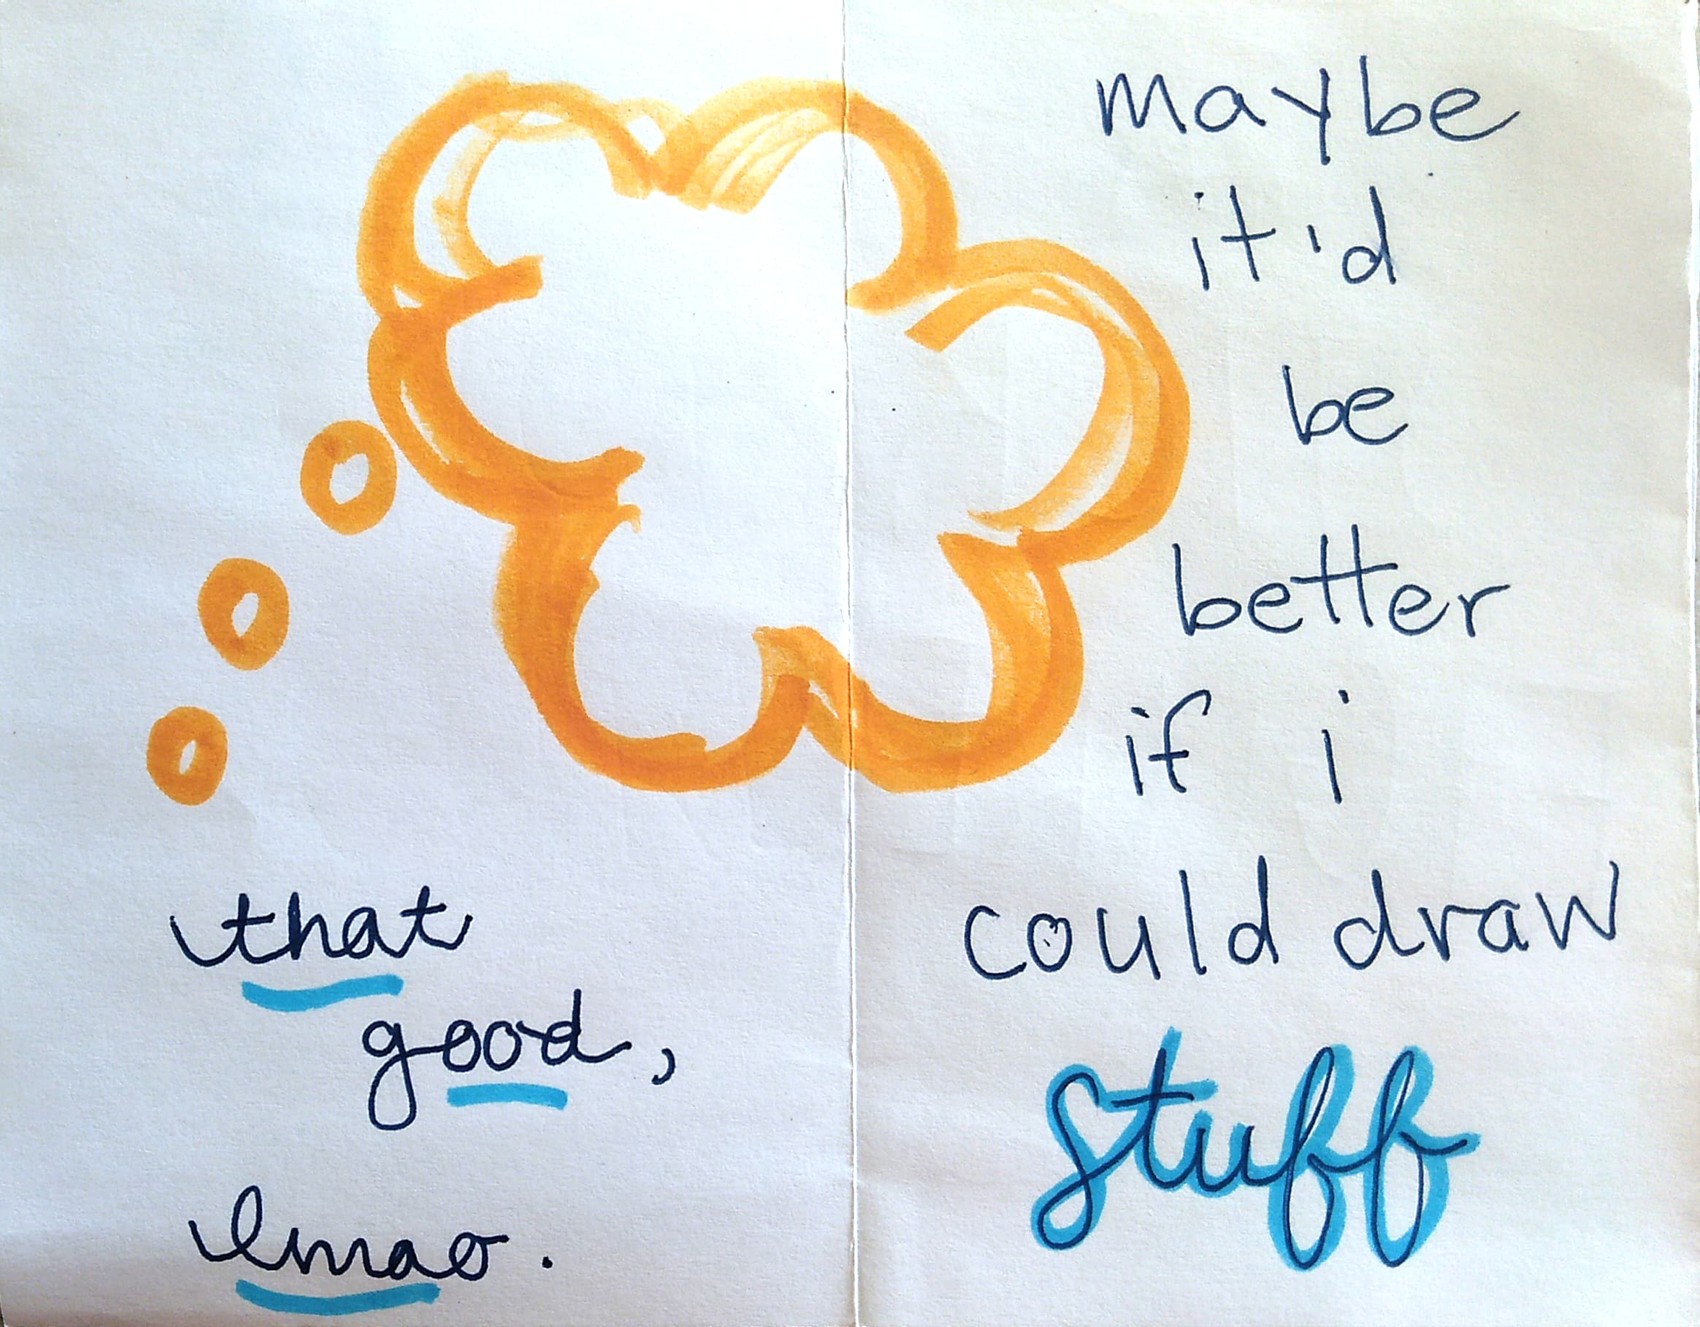 that
good,
lmao.
maybe
it'd
be
better
if i
could draw
stuff